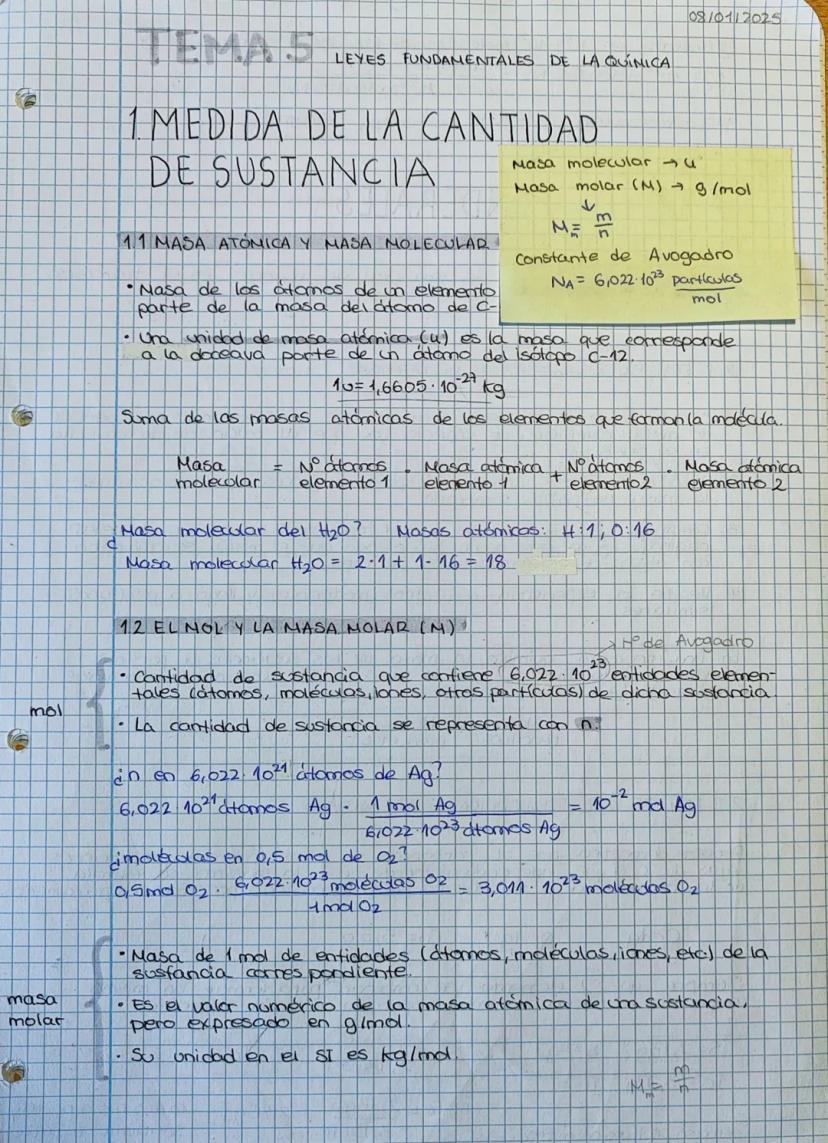 08/01/2025
TEMA 5 LEYES FUNDAMENTALES DE LA QUÍMICA
1. MEDIDA DE LA CANTIDAD
DE SUSTANCIA
Masa molecular → u
Masa molar (M) → g/mol
↓
Mm = m/n
constante de Avogadro
NA = 6,022·10²³ partículas/mol
1.1 MASA ATÓMICA Y MASA MOLECULAR
• Masa de los átomos de un elemento
parte de la masa del átomo de C-
• Una unidad de masa atómica (u) es la masa que corresponde
a la doceava parte de un átomo del isótopo C-12.
1u = 1,6605·10⁻²⁷ kg
Suma de las masas atómicas de los elementos que forman la molécula.
Masa molecular = Nº átomos elemento 1 · Masa atómica elemento 1 + Nº átomos elemento 2 · Masa atómica elemento 2
¿Masa molecular del H₂O? Masas atómicas: H:1; O:16
Masa molecular H₂O = 2·1 + 1·16 = 18
1.2 EL MOL Y LA MASA MOLAR (M)
→ nº de Avogadro
mol
• Cantidad de sustancia que contiene 6,022·10²³ entidades elemen-
tales (átomos, moléculas, iones, otras partículas) de dicha sustancia.
• La cantidad de sustancia se representa con n.
¿n en 6,022·10²¹ átomos de Ag?
6,022·10²¹ átomos Ag · 1 mol Ag / 6,022·10²³ átomos Ag = 10⁻² mol Ag
¿moléculas en 0,5 mol de O₂?
0,5 mol O₂ · 6,022·10²³ moléculas O₂ / 1 mol O₂ = 3,011·10²³ moléculas O₂
masa
molar
• Masa de 1 mol de entidades (átomos, moléculas, iones, etc) de la
sustancia correspondiente.
• Es el valor numérico de la masa atómica de una sustancia,
pero expresado en g/mol.
• Su unidad en el SI es kg/mol.
Mm = m/n